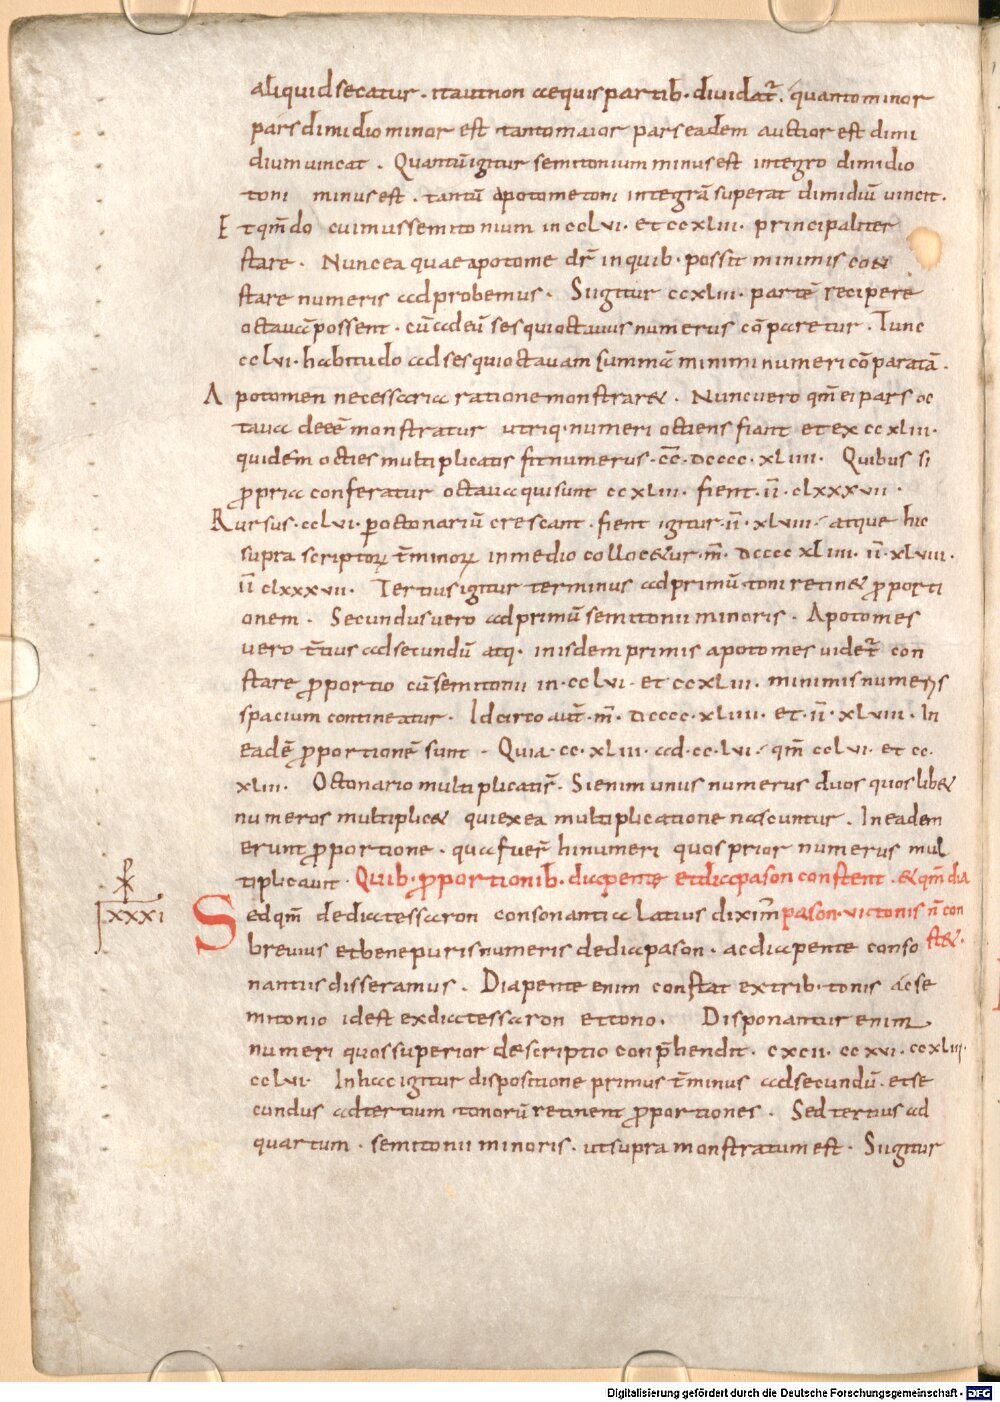 aliquid secatur . ita ut non aequis partib· diuidat̃. quanto minor
pars dimidio minor est tanto maior pars eadem auctior est dimi
dium uincat . Quantũ igitur semitonium minus est integro dimidio
toni minus est . tantũ apotome toni integrã superat dimidiũ uincit .
Et qm̃do cuimus semitonium in cclvi · et ccxliii · principaliter
stare . Nunc ea quae apotome dr̃ in quib· possit minimis con
stare numeris adprobemus . Si igitur ccxliii · partẽ recipere
octauã possent · cũ ad eũ sesquioctauus numerus cõparetur . Tunc
cclvi · habitudo ad sesquioctauam summã minimi numeri cõparatã .
Apotomen necessaria ratione monstrar& . Nunc uero qm̃ ei pars oc
taua deeẽ monstratur utriq· numeri octiens fiant et ex ccxliii ·
quidem octies multiplicatis fit numerus · · dcccc · xliiii · Quibus si
ꝓpria conferatur octaua qui sunt ccxliii · fient · ii̅ · clxxxvii ·
Rursus · cclvi · p̱ octonariũ crescant · fient igitur · ii̅ · xlviii · atque hic
supra scriptoꝝ t̃minoꝝ in medio colloc&ur · m̅ · dcccc xliiii · ii̅ · xlviii ·
ii̅ clxxxvii · Tertius igitur terminus ad primũ toni retin& ꝓporti
onem . Secundus uero ad primũ semitonii minoris . Apotomes
uero t̃tius ad secundũ atq· in isdem primis apotomes uidet̃ con
stare ꝓportio cũ semitonii in · cclvi · et ccxliii · minimis numeris
spacium contineatur . Idcirco aut̃ · m̅ · dcccc · xliiii · et · ii̅ · xlviii · In
eadẽ ꝓportionẽ sunt . Quia · cc · xliii · ad · cc · lvi · qm̃ cclvi · et cc ·
xliii · Octonario multiplicatis̃ . Si enim unus numerus duos quoslib&
numeros multiplic& qui ex ea multiplicatione nascuntur . In eadem
erunt ꝓportione . qua fuer̃ hi numeri quos prior numerus mul
tiplicauit . Quib· ꝓportionib· diapente et diapason constent . & qm̃ dia
Sed qm̃ de diatessaron consonantia latius diximꝰ pason · vi tonis ñ con
st& ·
xxxi
breuius et bene puris numeris de diapason · ac diapente conso
nantiis disseramus . Diapente enim constat ex trib· tonis ac se
mitonio id est ex diatessaron et tono . Disponantur enim
numeri quos superior descriptio conp̃hendit . cxcii · ccxvi · ccxliii ·
cclvi · In hac igitur dispositione primus t̃minus ad secundũ · et se
cundus ad tertium tonorũ retinent ꝓportiones . Sed tertius ad
quartum · semitonii minoris · ut supra monstratum est . Si igitur
Digitalisierung gefördert durch die Deutsche Forschungsgemeinschaft - DFG